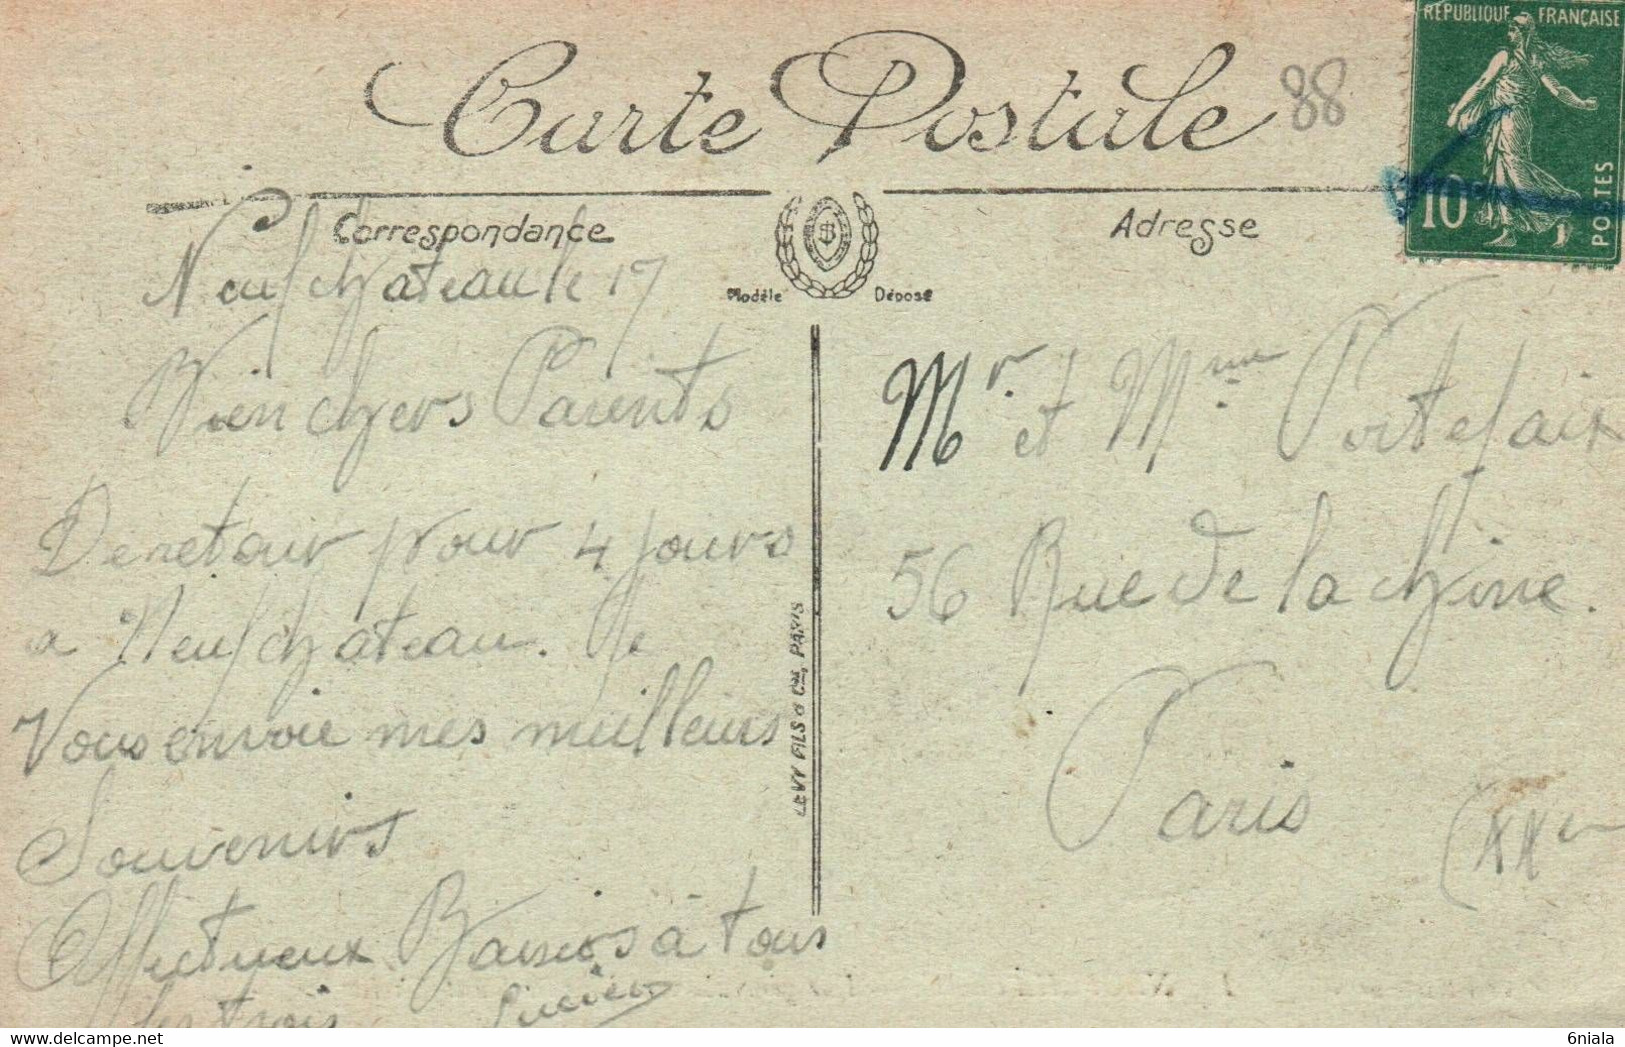 RÉPUBLIQUE FRANÇAISE
10
POSTES
Carte Postale
88
Correspondance
Adresse
Modèle Déposé
LEVY FILS & Cie, PARIS
Neufchateau le 17
Bien chers Parents
De retour pour 4 jours
a Neufchateau. Je
Vous envoie mes meilleurs
Souvenirs
Affectueux Baisers à tous
les trois
Lucien
Mr et Mme Portefaix
56 Rue de la Chine.
Paris
(XXe
6niala